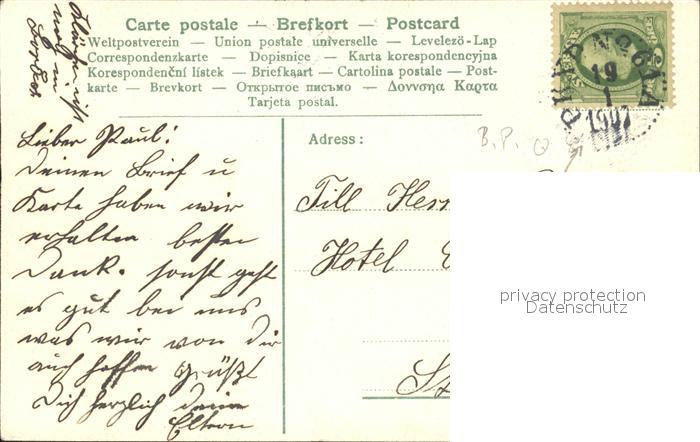 Carte postale — Brefkort — Postcard
Weltpostverein — Union postale universelle — Levelezö-Lap
Correspondenzkarte — Dopisnice — Karta korespondencyjna
Korespondenční lístek — Briefkaart — Cartolina postale — Post-
karte — Brevkort — Открытое письмо — Δοννσηα Καρτα
Tarjeta postal.
PKXP No 61A
19
1
1907
B. P.
Adress:
Till Herr
Hotel
St
Lieber Paul!
Deinen Brief u
Karte haben wir
erhalten besten
Dank. sonst geht
es gut bei uns
was wir von Dir
auch hoffen Grüßt
Dich herzlich deine
Eltern
privacy protection
Datenschutz